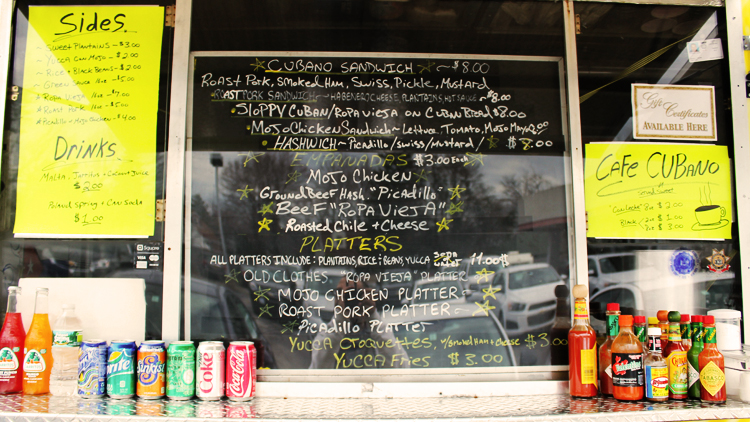 Sides.
~ Sweet Plantains ~ $3.00
~ Yucca Con Mojo ~ $2.00
~ Rice + Black Beans ~ $2.00
~ Green Sauce ~ $5.00
Ropa Vieja $7.00
Roast Pork ~ $5.00
Picadillo + Mojo Chicken ~ $4.00
Drinks
Malta, Jarritos + Coconut Juice
$2.00
Poland Spring + Can Soda
$1.00
CUBANO SANDWICH ~ $8.00
Roast Pork, Smoked Ham, Swiss, Pickle, Mustard
ROAST PORK SANDWICH ~ Habenero Cheese, Plantains, Hot Sauce ~ $8.00
SLOPPY CUBAN/ROPA VIEJA ON CUBAN BREAD $8.00
Mojo Chicken Sandwich ~ Lettuce, Tomato, Mojo Mayo
HASHWICH ~ Picadillo/Swiss/Mustard/ $8.00
EMPANADAS $3.00 Each
Mojo Chicken
Ground Beef Hash "Picadillo"
Beef "Ropa Vieja"
Roasted Chile + Cheese
PLATTERS
ALL PLATTERS INCLUDE: PLANTAINS, RICE + BEANS, YUCCA 11.00$
OLD CLOTHES "ROPA VIEJA" PLATTER
MOJO CHICKEN PLATTER
ROAST PORK PLATTER
Picadillo Platter
Yucca Croquettes, w/Smoked Ham + Cheese $3.00
Yucca Fries $3.00
Gift Certificates
AVAILABLE HERE
CAFE CUBANO
"Cortadito" 8oz $2.00
Black 2oz $1.00
8oz $3.00
Square
VISA
Sprite
Sunkist
Coke
Coca-Cola
TABASCO